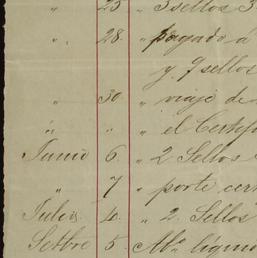 " 25 " 3 sellos 3
" 28 " pagado a
y 9 sellos
" 30 " viaje de
" " " el Certif
Junio 6 " 2 Sellos
" 7 " porte cer
Julio 4 " 2 Sellos
Setbre 5